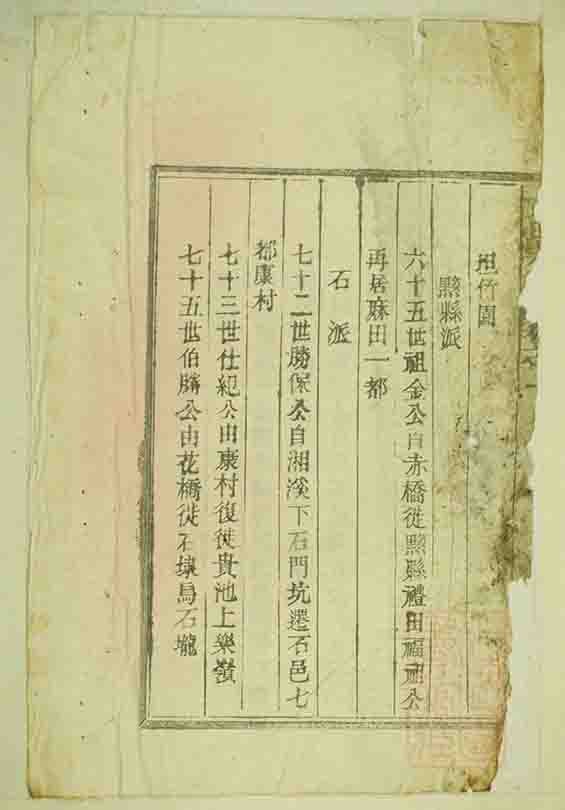 坦竹園
黟縣派
六十五世祖金公自赤橋徙黟縣禮田福祖公
再居麻田一都
石派
七十二世勝保公自湘溪下石門坑遷石邑七
都康村
七十三世仕紀公由康村復徙貴池上樂嶺
七十五世伯勝公由花橋徙石埭烏石壠